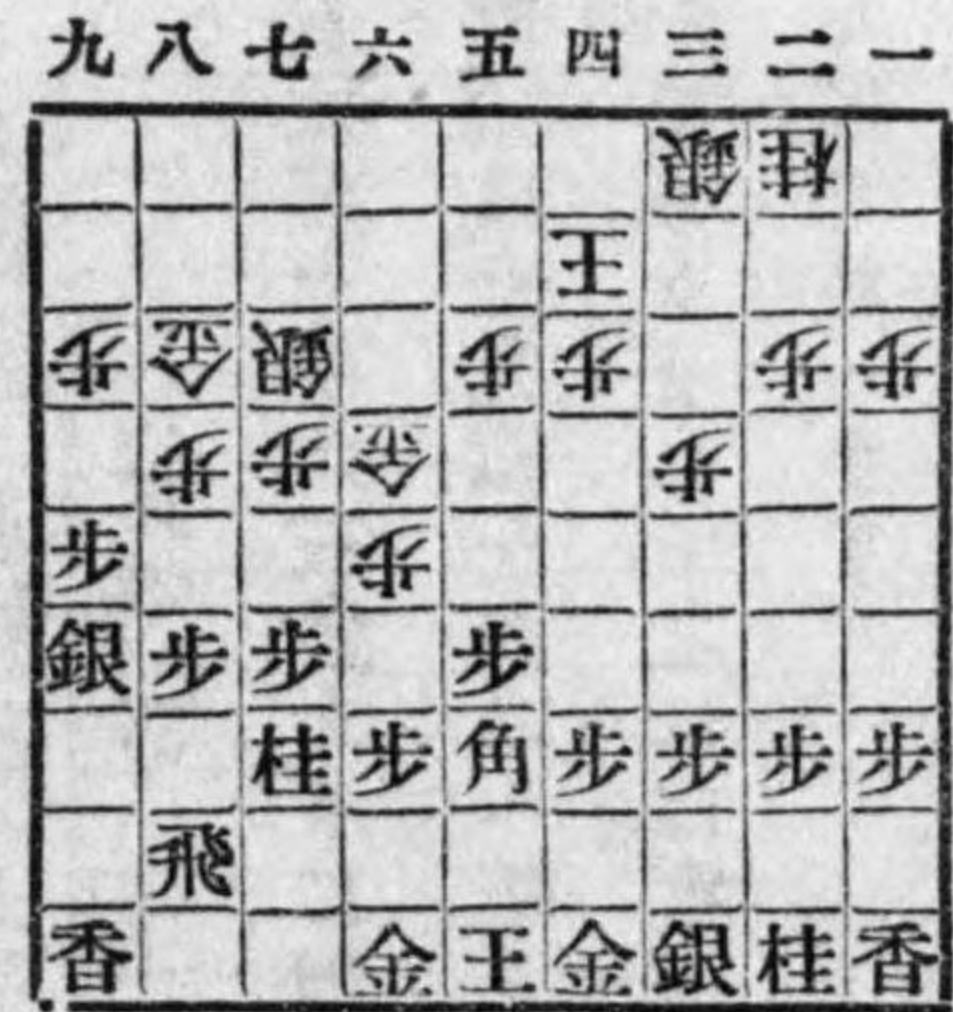 九八七六五四三二一
銀桂
王
歩金銀歩歩歩歩
歩歩金歩
歩歩
銀歩歩歩
桂歩角歩歩歩歩
飛
香金王金銀桂香